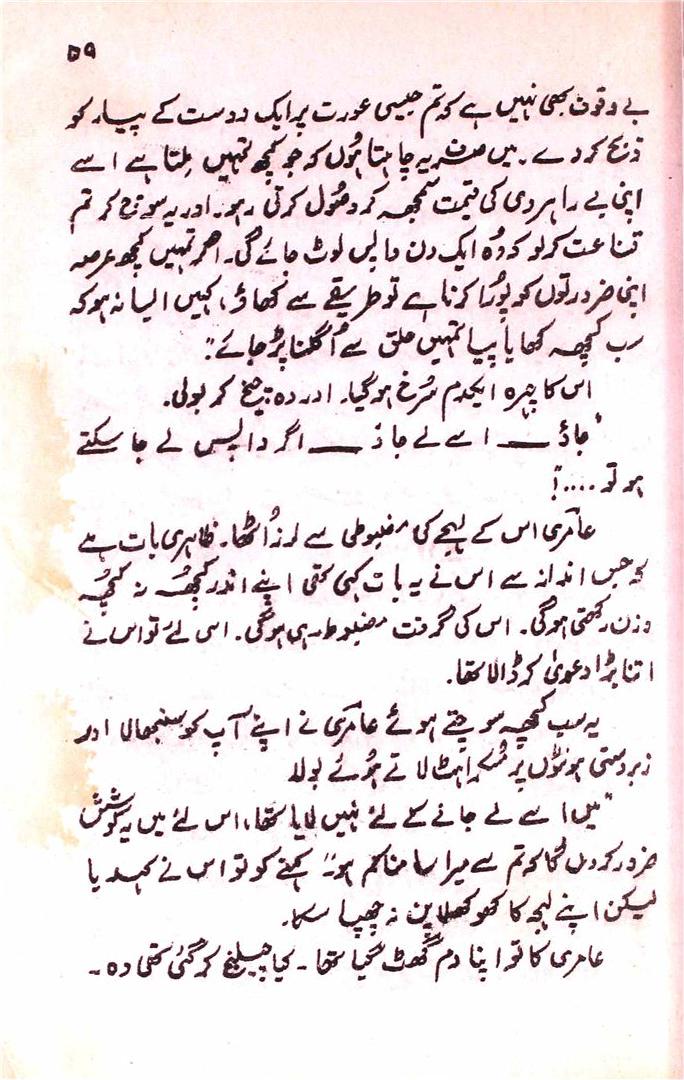 ۵۹
بے وقوف بھی نہیں ہے کہ تم جیسی عورت پر ایک دوست کے پیار کو
ذبح کر دے۔ میں صرف یہ چاہتا ہوں کہ جو کچھ تمہیں ملتا ہے اسے
اپنی بے راہ روی کی قیمت سمجھ کر وصول کرتی رہو۔ اور یہ سوچ کر تم
قناعت کر لو کہ وہ ایک دن واپس لوٹ جائے گی۔ اگر تمہیں کچھ عرصہ
اپنی ضرورتوں کو پورا کرنا ہے تو طریقے سے کھاؤ، کہیں ایسا نہ ہو کہ
سب کچھ کھایا پیا تمہیں حلق سے اُگلنا پڑ جائے"۔
اس کا چہرہ ایکدم سُرخ ہو گیا۔ اور وہ چیخ کر بولی۔
"جاؤ ـــــ اسے لے جاؤ ـــــ اگر واپس لے جا سکتے
ہو تو ....!
عامری اس کے لہجے کی مضبوطی سے لرز اُٹھا۔ ظاہری بات ہے
کہ جس انداز سے اس نے یہ بات کہی تھی اپنے اندر کچھ نہ کچھ
وزن رکھتی ہوگی۔ اس کی گرفت مضبوط رہی ہوگی۔ اسی لئے تو اس نے
اتنا بڑا دعویٰ کر ڈالا تھا۔
یہ سب کچھ سوچتے ہوئے عامری نے اپنے آپ کو سنبھالا اور
زبردستی ہونٹوں پر مُسکراہٹ لاتے ہوئے بولا
"میں اسے لے جانے کے لئے نہیں لایا تھا، اس لئے میں یہ کوشش
ضرور کروں گا کہ تم سے میرا سامنا کم ہو" کہنے کو تو اس نے کہہ دیا
لیکن اپنے لہجہ کا کھوکھلا پن نہ چھپا سکا۔
عامری کا تو اپنا دم گھٹ گیا تھا۔ کیا چیلنج کر گئی تھی وہ۔